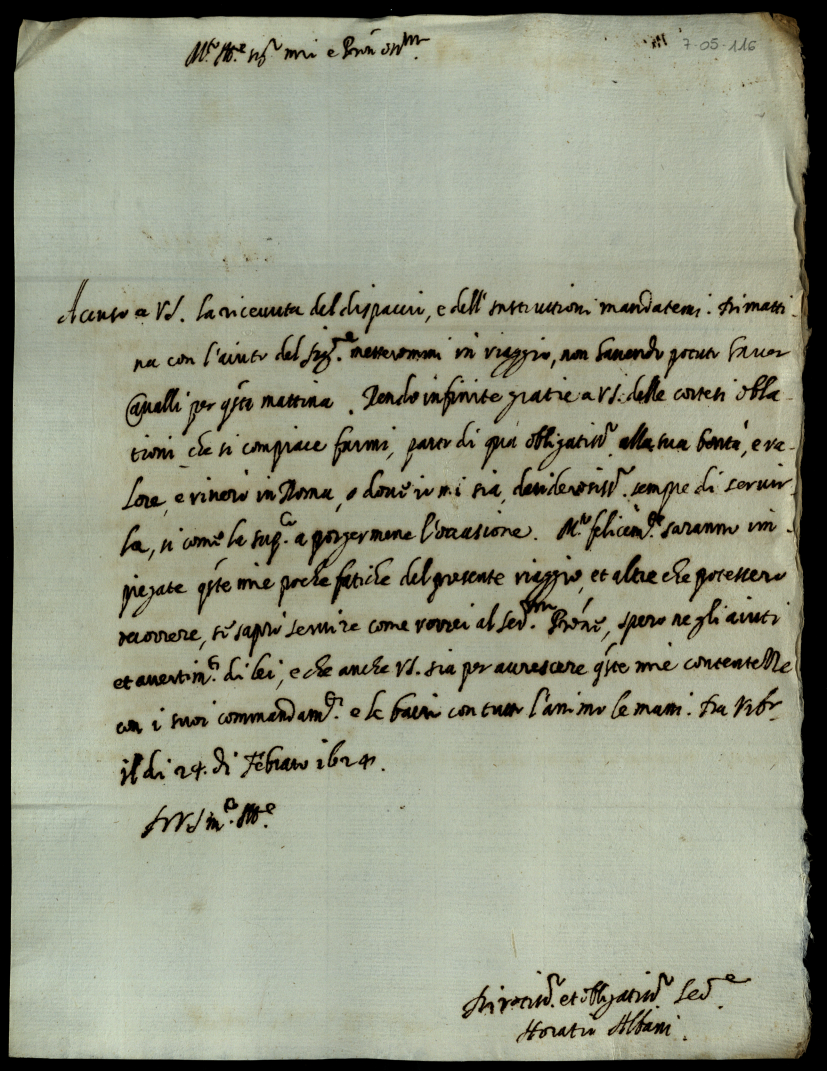 7-05-116
M.to Ill.re sig.r mio e Pron oss.mo
Accuso a VS. la ricevuta del dispaccio, e dell'Instruttioni mandatemi. Dimatti-
na con l'aiuto del Sig.re metterommi in viaggio, non havendo potuto haver
Cavalli per q'sta mattina. Rendo infinite gratie a VS. delle cortesi obla-
tioni che si compiace farmi, parto di quà obligatiss.o alla sua bontà, e va-
lore, e vivero in Roma, o dove io mi sia, desiderosiss.o sempre di servir-
la, si come la sup.co a porgermene l'occasione. M.to felicem.te saranno im-
piegate q'ste mie poche fatiche del presente viaggio, et altre che potessero
occorrere, se saprò servire come vorrei al Ser.mo Prone, spero negli aiuti
et avertim.ti di lei, e che anche VS. sia per accrescere q'ste mie contentezze
con i suoi commandam.ti e le bacio con tutto l'animo le mani. Da Urb.o
il di 24. di Febraro 1624.
Di VS m.to Ill.re
Divotiss.o et obligatiss.o Ser.re
Horatio Albani.